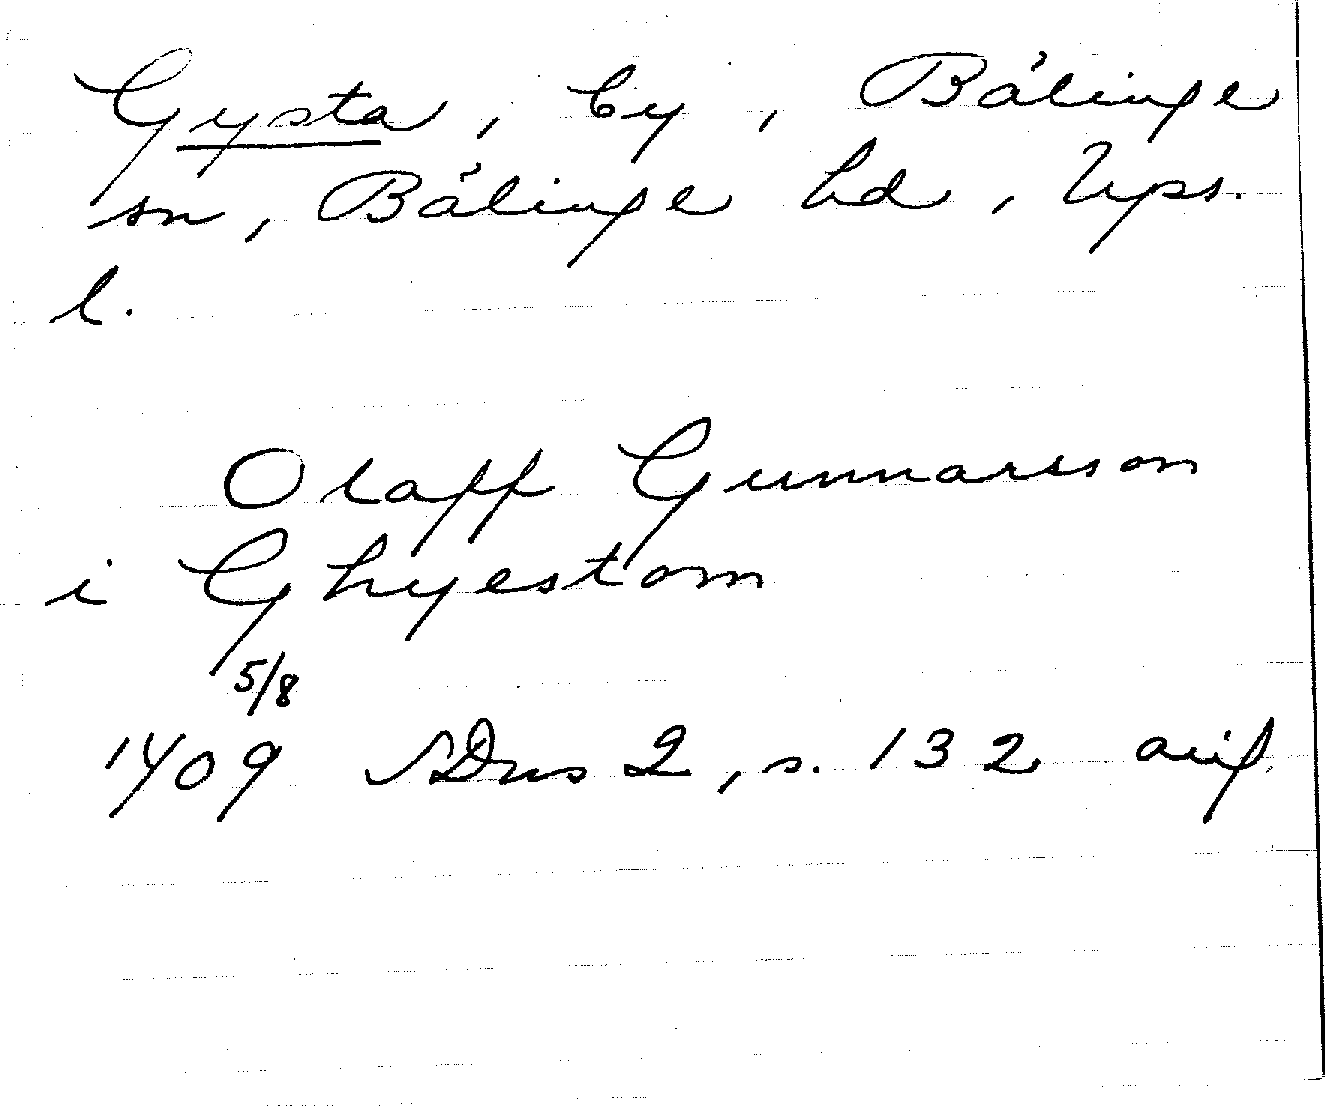 Gysta, by, Bälinge
sn, Bälinge hd, Upps.
l.
Olaff Gunnarsson
i Ghyestom
5/8
1409 SDns 2, s. 132 avig